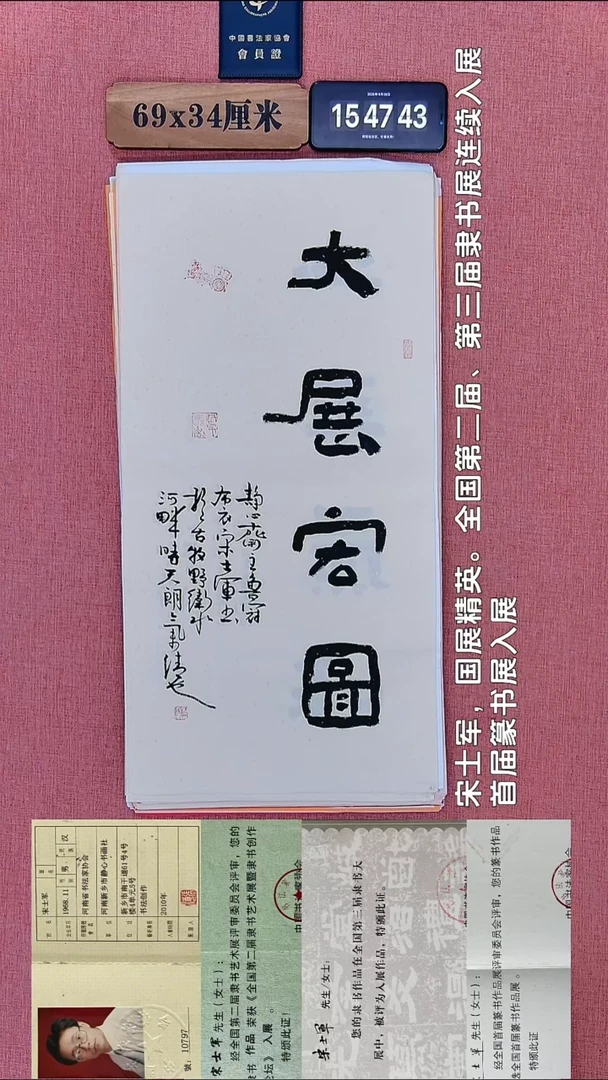 中國書法家協會
會員證
69x34厘米
15 47 43
大
宏
圖
静心斋
布衣宋士軍书
於古牧野衛水
河畔時天朗气清也
宋士军，国展精英。全国第二届、第三届隶书展连续入展
首届篆书展入展
宋士军
男
汉
1968.11
河南省书法家协会
河南新乡市静心书画社
新乡市南干道61号4号
楼4单元5号
书法创作
2010年
號：10797
宋士军 先生（女士）：
经全国第二届隶书艺术展评审委员会评审，您的
隶书 作品 荣获《全国第二届隶书艺术展暨隶书创作
论坛》入展 。
特颁此证！
宋士军 先生/女士：
您的隶书作品在全国第三届隶书大
展中，被评为入展作品，特颁此证。
先生（女士）：
经全国首届篆书作品展评审委员会评审，您的篆书作品
全国首届篆书作品展 。
特颁此证